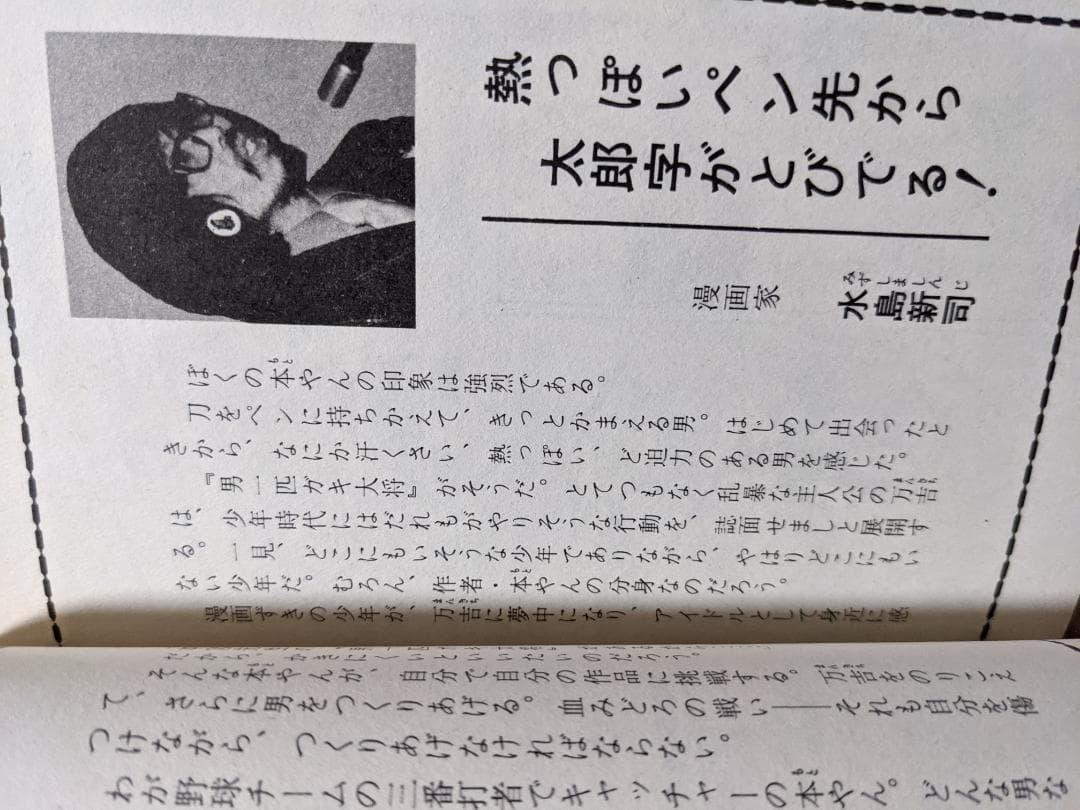 熱っぽいペン先から
太郎字がとびでる!
漫画家
みずしましんじ
水島新司
ぼくの本やんの印象は強烈である。
刀をペンに持ちかえて、きっとかまえる男。はじめて出会ったと
きから、なにか汗くさい、熱っぽい、ど迫力のある男を感じた。
『男一匹ガキ大将』がそうだ。とてつもなく乱暴な主人公の万吉
は、少年時代にはだれもがやりそうな行動を、誌面せましと展開す
る。一見、どこにもいそうな少年でありながら、やはりどこにもい
ない少年だ。むろん、作者・本やんの分身なのだろう。
漫画ずきの少年が、万吉に夢中になり、アイドルとして身近に感
いいたいのだろう。
そんな本やんが、自分で自分の作品に挑戦する。万吉をのりこえ
て、さらに男をつくりあげる。血みどろの戦い――それも自分を傷
つけながら、つくりあげなければならない。
わが野球チームの三番打者でキャッチャーの本やん。どんな男な